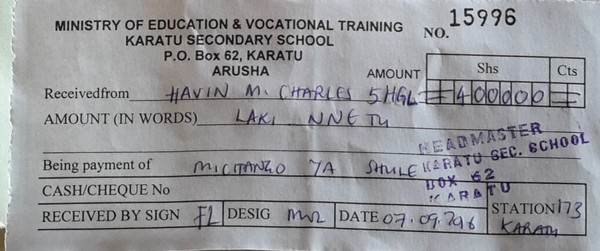 MINISTRY OF EDUCATION & VOCATIONAL TRAINING
KARATU SECONDARY SCHOOL
P.O. Box 62, KARATU
ARUSHA
NO. 15996
AMOUNT Shs Cts
Receivedfrom HAVIN M. CHARLES 5HGL = 400000 =
AMOUNT (IN WORDS) LAKI NNE TU
HEADMASTER
KARATU SEC. SCHOOL
BOX 62
KARATU
Being payment of MICHANGO YA SHULE
CASH/CHEQUE No
RECEIVED BY SIGN FL DESIG DATE 07.09.2016 STATION 173
KARATU